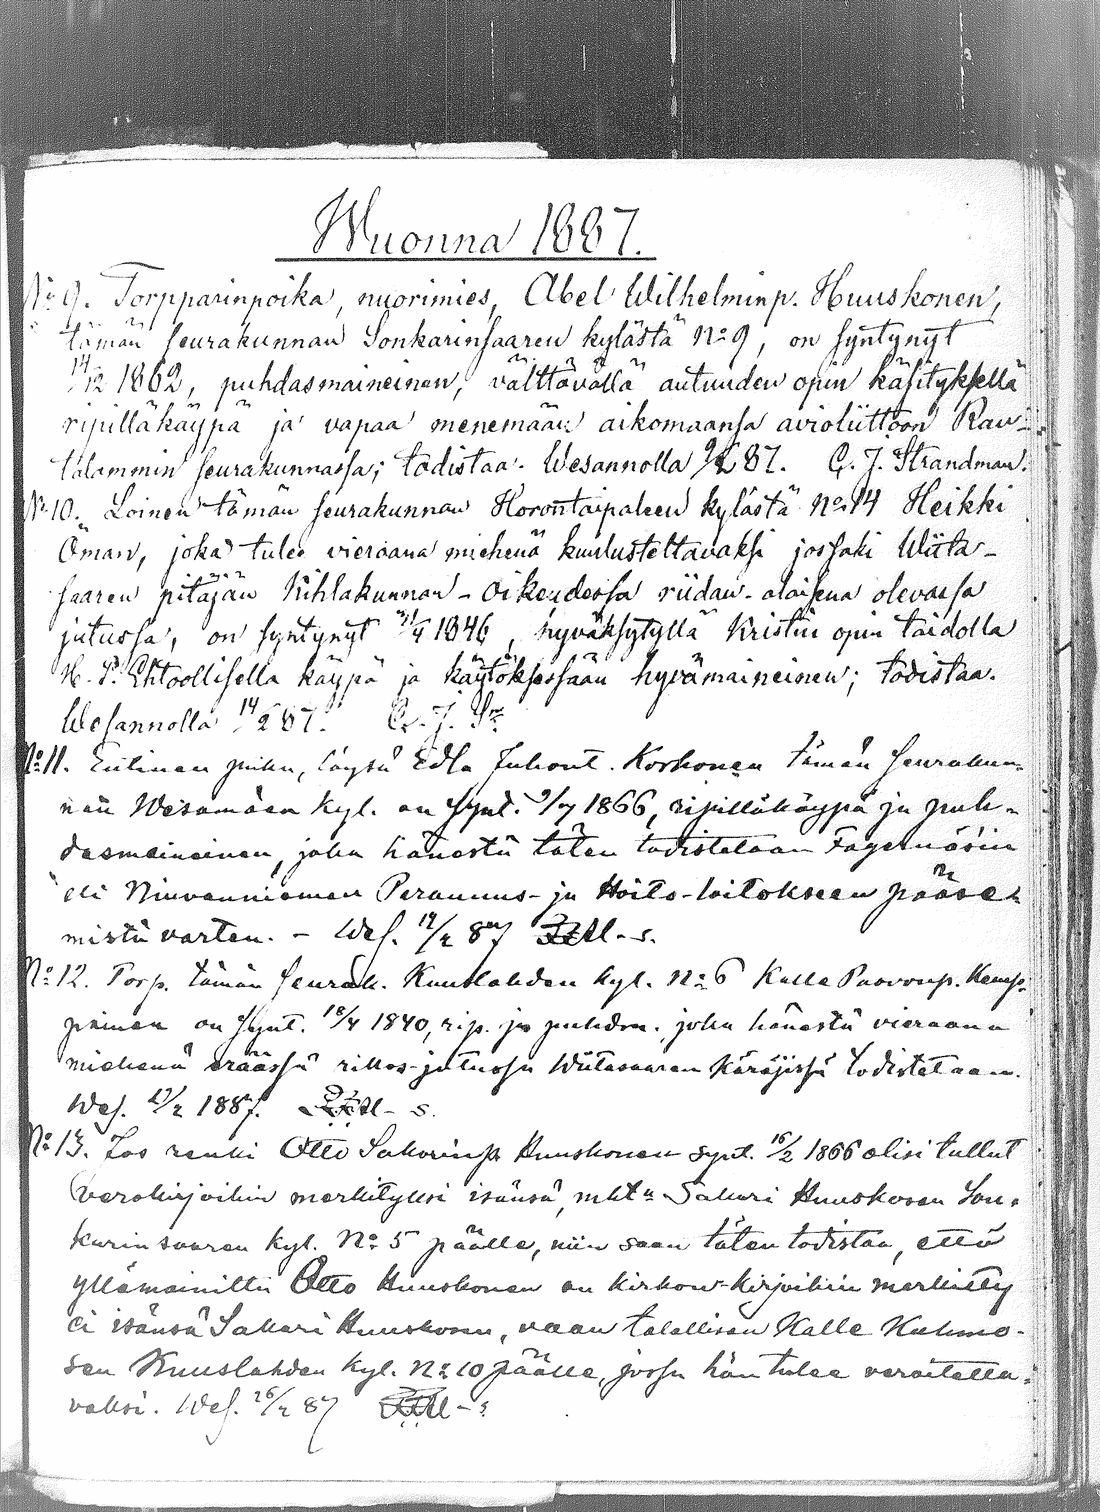 Wuonna 1887.
No 9. Torpparinpoika, nuorimies, Abel Wilhelminp. Huuskonen,
tämän seurakunnan Sonkarinsaaren kylästä No 9, on syntynyt
14/12 1862, puhdasmaineinen, välttävällä autuuden opin käsityksellä
ripilläkäypä ja vapaa menemään aikomaansa avioliittoon Rau-
talammin seurakunnassa; todistaa. Wesannolla 9/2 87. C. J. Strandman.
No 10. Loinen tämän seurakunnan Horontaipaleen kylästä No 14 Heikki
Öman, joka tulee vieraana miehenä kuulusteltavaksi jossaki Wiita-
saaren pitäjän Kihlakunnan-oikeudessa riidan-alaisena olevassa
jutussa, on syntynyt 21/4 1846, hyväksytyllä Kristin opin taidolla
H. P. Ehtoollisella käypä ja käytöksessään hyvämaineinen; todistaa.
Wesannolla 14/2 87. C. J. Sn
No 11. Entinen piika, löysä Edla Juhont. Korhonen tämän seurakun-
nan Wesamäen kyl. on synt. 9/7 1866, ripilläkäypä ja puh-
dasmaineinen, joka hänestä täten todistetaan Fagernäsin
eli Niuvanniemen Parannus- ja Hoito-laitokseen pääse-
mistä varten. - Wes. 19/2 87 -s.
No 12. Torp. tämän seurak. Kuuslahden kyl. No 6 Kalle Paavonp. Kemp-
painen on synt. 18/4 1840, rip. ja puhdm. joka hänestä vieraana
miehenä eräässä rikos-jutussa Wiitasaaren Käräjissä todistetaan.
Wes. 21/2 1887. - s.
No 13. Jos renki Otto Sakarinp. Huuskonen synt. 16/2 1866 olisi tullut
verokirjoihin merkityksi isänsä, mkt Sakari Huuskosen Son-
karinsaaren kyl. No 5 päälle, niin saan täten todistaa, että
yllämainittu Otto Huuskonen on kirkon-kirjoihin merkitty
ei isänsä Sakari Huuskosen, vaan talollisen Kalle Kuhmo-
sen Kuuslahden kyl. No 10 päälle, jossa hän tulee veroitetta-
vaksi. Wes. 26/2 87 - s